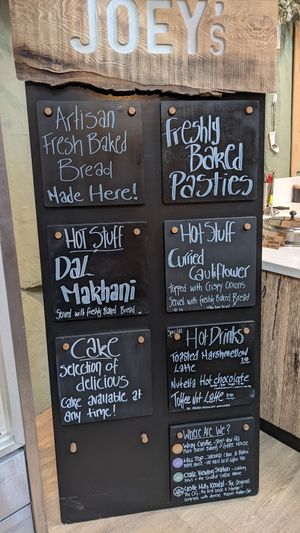 JOEY's
Artisan
Fresh Baked
Bread
Made Here!
Freshly
Baked
Pasties
Hot Stuff
Dal
Makhani
Served with Freshly Baked Bread
Hot Stuff
Curried
Cauliflower
Topped with Crispy Onions
Served with Freshly Baked Bread
Cake
selection of
delicious
Cake available at
any time!
Special
Hot Drinks
Toasted Marshmellow
Latte
Nutella Hot chocolate
Toffee Nut Latte
Where Are We?
Wray Castle
Hill Top
Claife Viewing Station
Castle